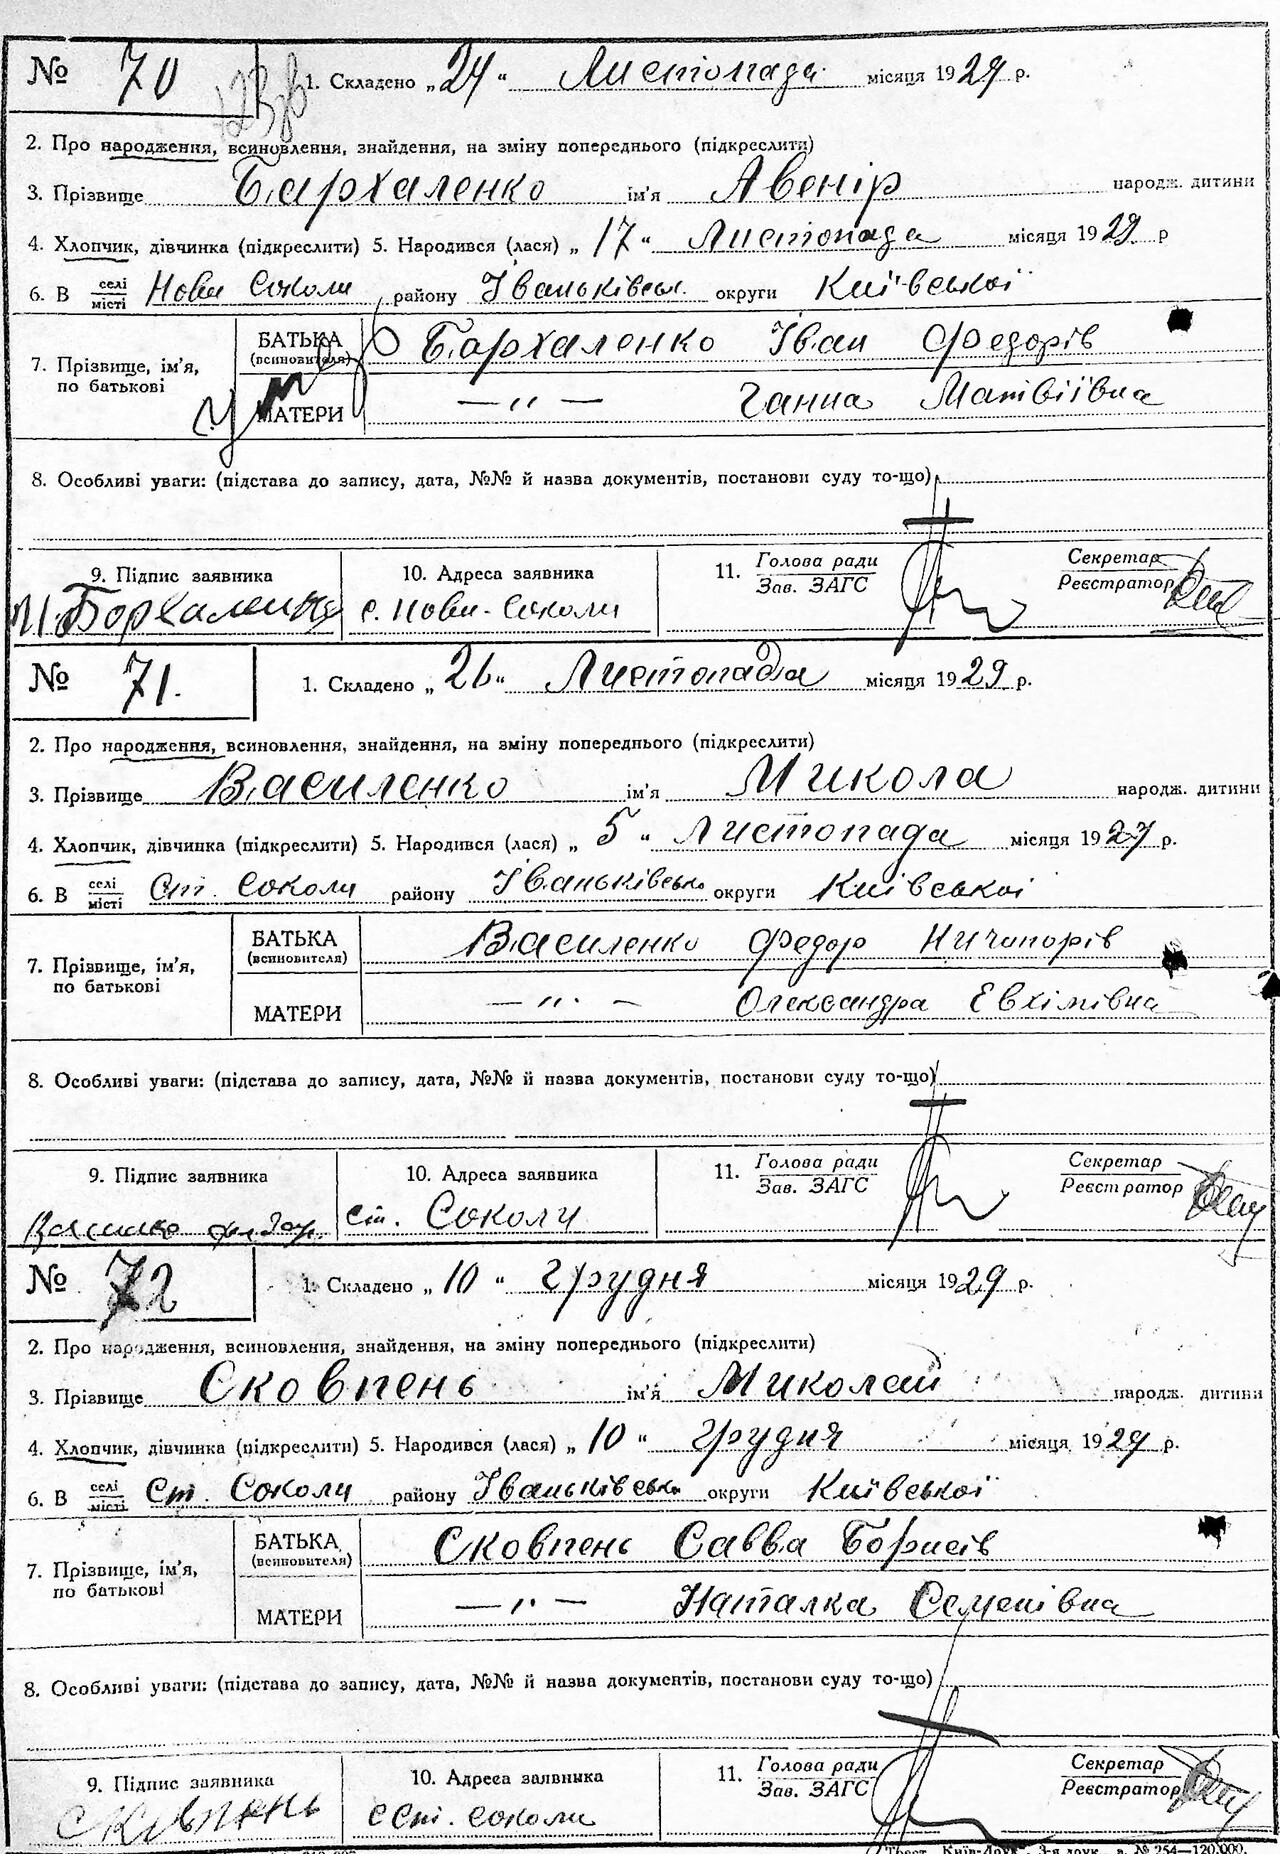 № 70 1. Складено „24“ Листопада місяця 1929 р.
2. Про народження, всиновлення, знайдення, на зміну попереднього (підкреслити)
3. Прізвище Бархаленко ім'я Авенір народж. дитини
4. Хлопчик, дівчинка (підкреслити) 5. Народився (лася) „17“ Листопада місяця 1929 р
6. В селі місті Нови Соколи району Іваньківськ. округи Київської
7. Прізвище, ім'я, по батькові БАТЬКА (всиновителя) Бархаленко Іван Федорів
МАТЕРИ —„— Ганна Матвіївна
8. Особливі уваги: (підстава до запису, дата, №№ й назва документів, постанови суду то-що)
9. Підпис заявника 10. Адреса заявника 11. Голова ради Зав. ЗАГС Секретар Реєстратор
с. Нови-Соколи
№ 71. 1. Складено „26“ Листопада місяця 1929 р.
2. Про народження, всиновлення, знайдення, на зміну попереднього (підкреслити)
3. Прізвище Василенко ім'я Микола народж. дитини
4. Хлопчик, дівчинка (підкреслити) 5. Народився (лася) „5“ Листопада місяця 1927 р.
6. В селі місті Ст. Соколи району Іваньківсько округи Київської
7. Прізвище, ім'я, по батькові БАТЬКА (всиновителя) Василенко Федор Ничипорів
МАТЕРИ —„— Олександра Евхімівна
8. Особливі уваги: (підстава до запису, дата, №№ й назва документів, постанови суду то-що)
9. Підпис заявника 10. Адреса заявника 11. Голова ради Зав. ЗАГС Секретар Реєстратор
ст. Соколи
№ 72 1. Складено „10“ Грудня місяця 1929 р.
2. Про народження, всиновлення, знайдення, на зміну попереднього (підкреслити)
3. Прізвище Сковпень ім'я Миколай народж. дитини
4. Хлопчик, дівчинка (підкреслити) 5. Народився (лася) „10“ Грудня місяця 1929 р.
6. В селі місті Ст. Соколи району Іваньківсько округи Київської
7. Прізвище, ім'я, по батькові БАТЬКА (всиновителя) Сковпень Савва Борисів
МАТЕРИ —„— Наталка Семенівна
8. Особливі уваги: (підстава до запису, дата, №№ й назва документів, постанови суду то-що)
9. Підпис заявника 10. Адреса заявника 11. Голова ради Зав. ЗАГС Секретар Реєстратор
Сковпень с Ст. Соколи
Трест „Київ-Друк“, 3-я друк., з. № 254—120.000.